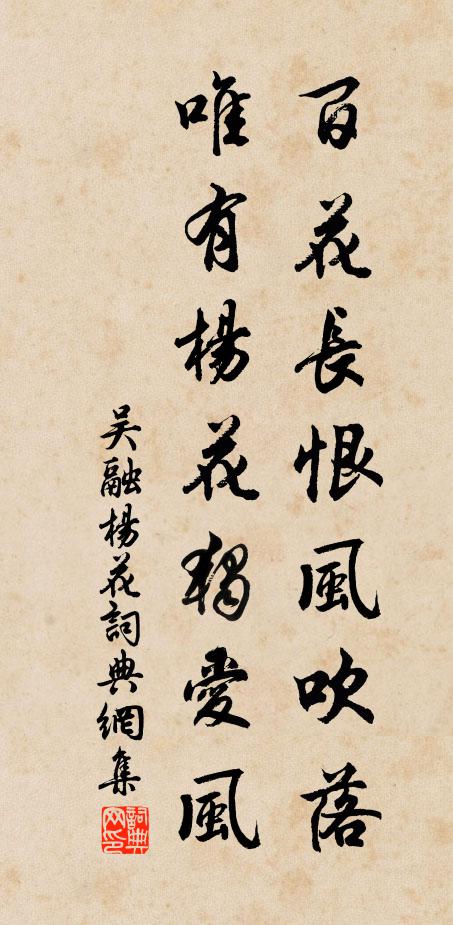 百花長恨風吹落
唯有楊花獨愛風
吴融楊花詞典網集
詞典网印